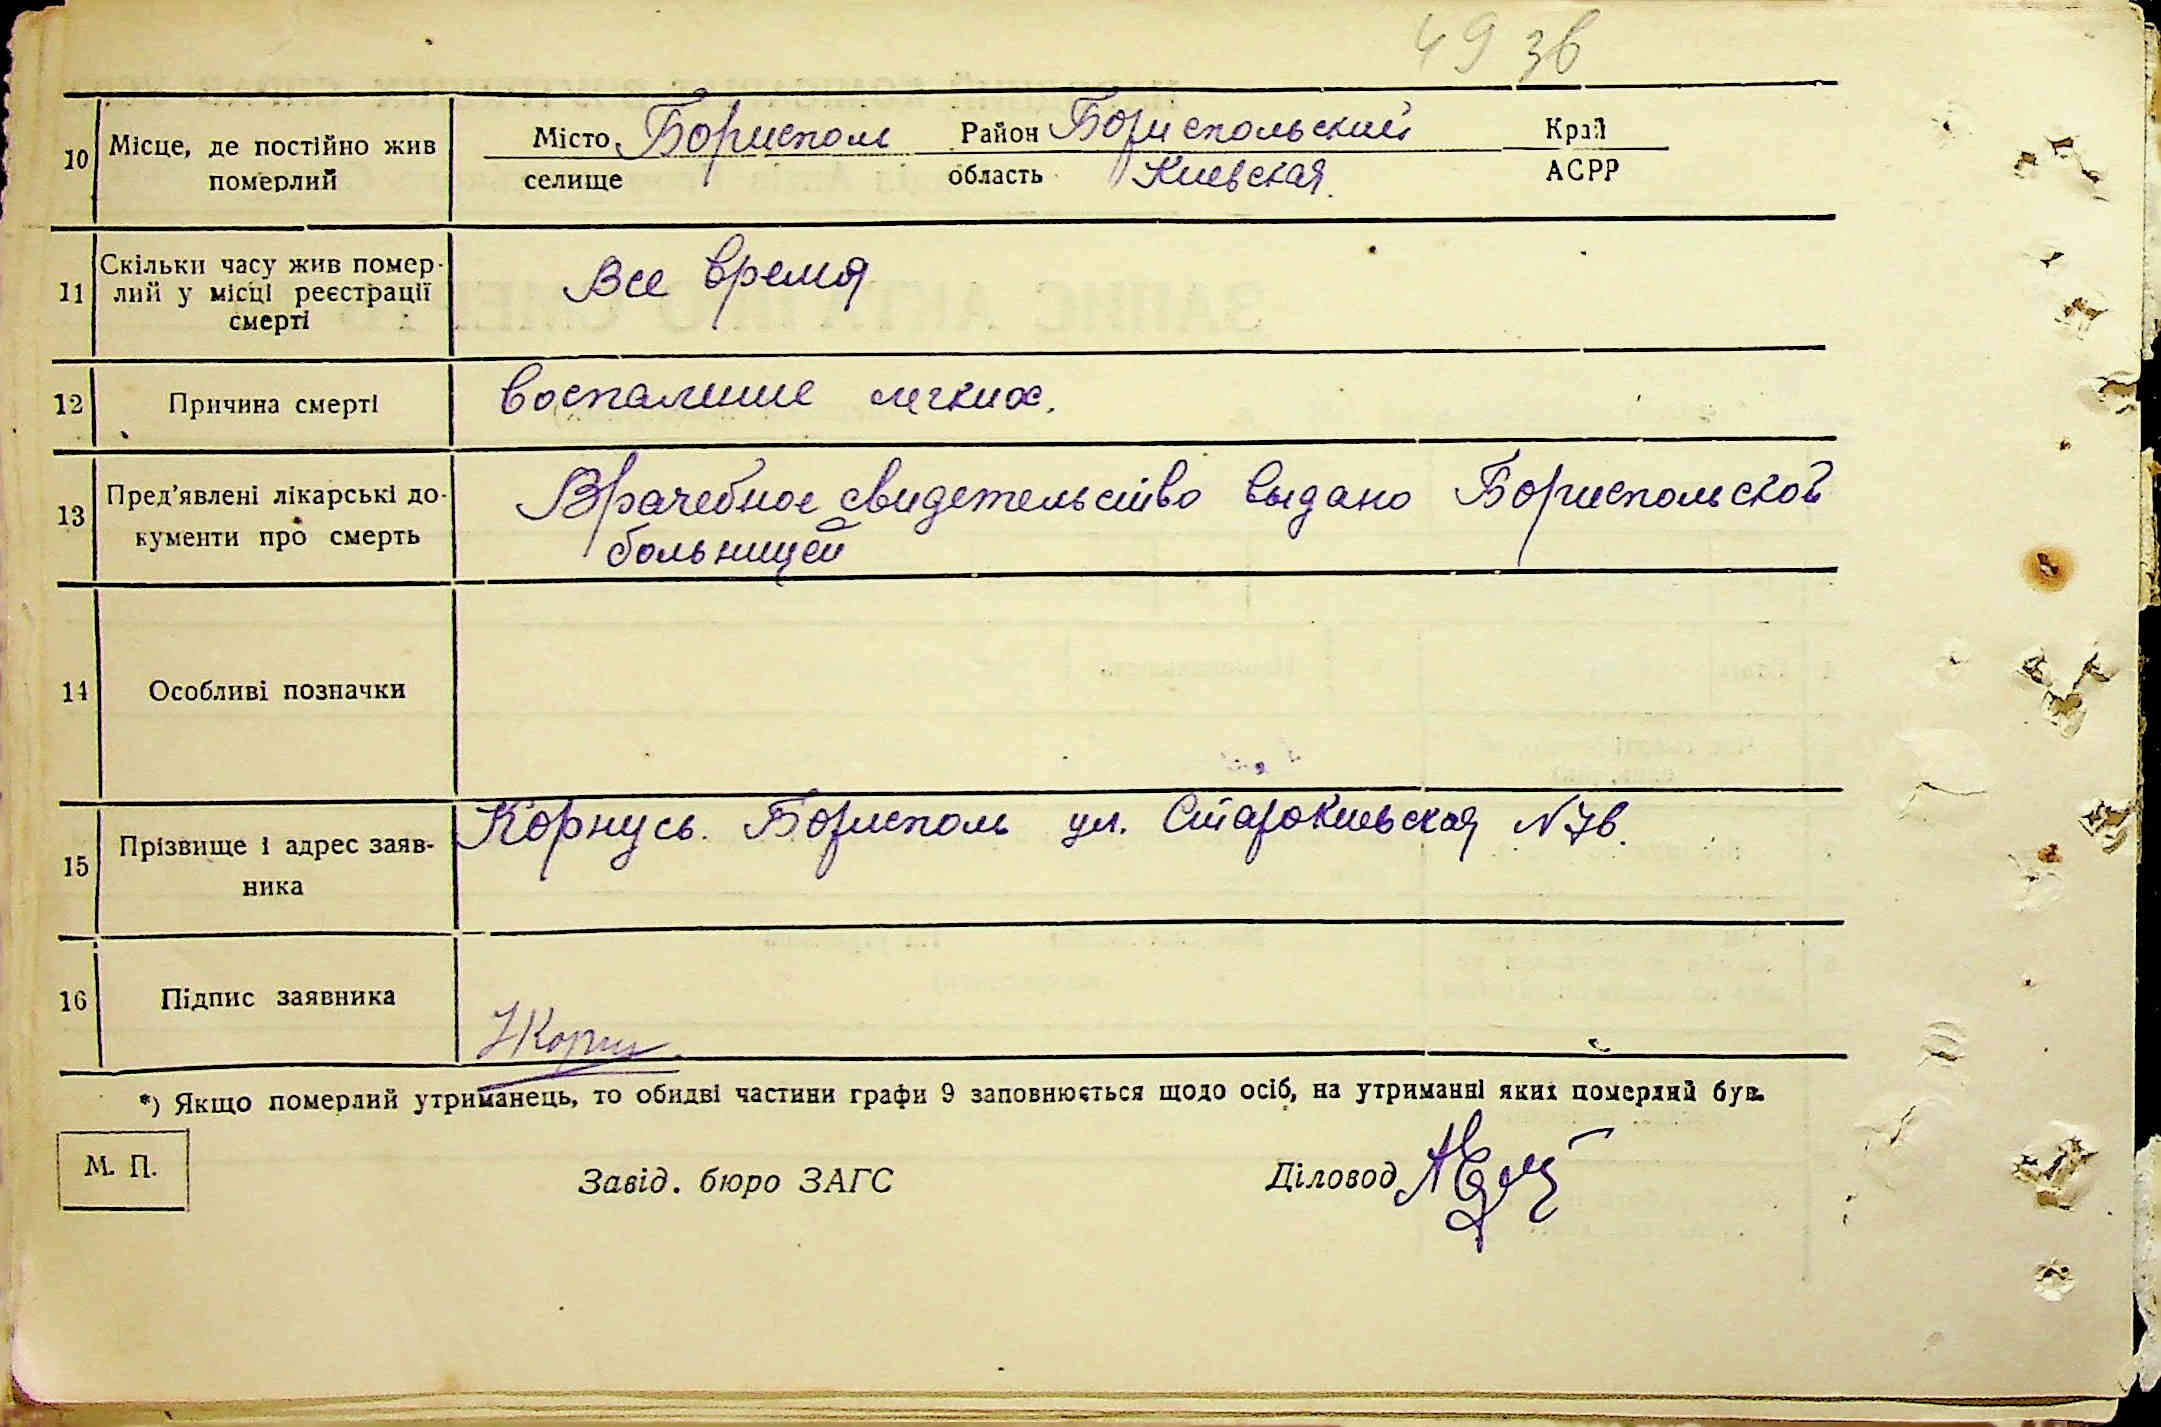 49 зв
10 Місце, де постійно жив померлий
Місто Борисполь Район Бориспольский Край
селище область Киевская. АСРР
11 Скільки часу жив помер-
лий у місці реєстрації
смерті
Все время
12 Причина смерті
воспаление легких.
13 Пред’явлені лікарські до-
кументи про смерть
Врачебное свидетельство выдано Бориспольской
больницей
14 Особливі позначки
15 Прізвище і адрес заяв-
ника
Корнусь. Борисполь ул. Старокиевская N
16 Підпис заявника
*) Якщо померлий утриманець, то обидві частини графи 9 заповнюється щодо осіб, на утриманні яких померлий був.
М. П.
Завід. бюро ЗАГС
Діловод